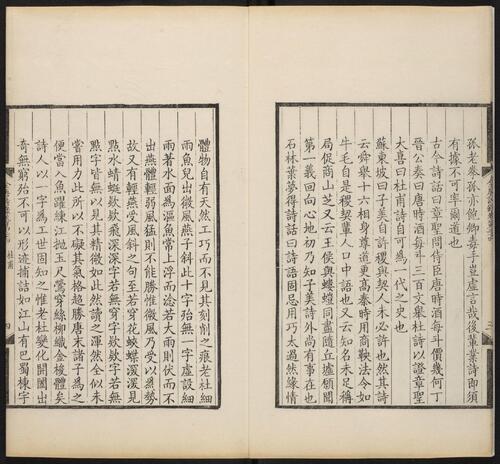 孤老拳孫亦飽卿喜手豈虛言哉後輩業詩即須
有據不可率爾道也
古今詩話曰章聖問侍臣唐時酒每斗價幾何丁
晉公奏曰唐時酒每斗三百文舉杜詩以證章聖
大喜曰杜甫詩自可為一代之史也
蘇東坡曰子美自許稷與契人未必許也然其詩
云舜舉十六相身尊道更高秦時用商鞅法令如
牛毛自是稷契輩人口中語也又云知名未足稱
局促商山芝又云王侯與螻蟻同盡隨丘墟願聞
第一義回向心地初乃知子美詩外尚有事在也
石林葉夢得詩話曰詩語固忌用巧太過然緣情
體物自有天然工巧而不見其刻削之痕老杜細
雨魚兒出微風燕子斜此十字殆無一字虛設細
雨著水面為漚魚常上浮而淰若大雨則伏而不
出燕體輕弱風猛則不能勝惟微風乃受以為勢
故又有輕燕受風斜之句至若穿花蛺蝶深深見
點水蜻蜓款款飛深深字若無穿字款款字若無
點字皆無以見其精微如此然讀之渾然全似未
嘗用力此所以不礙其氣格超勝唐末諸子為之
便當入魚躍練江拋玉尺鶯穿絲柳織金梭體矣
詩人以一字為工世固知之惟老杜變化開闔出
奇無窮殆不可以形迹捕詰如江山有巴蜀棟宇
杜甫
四